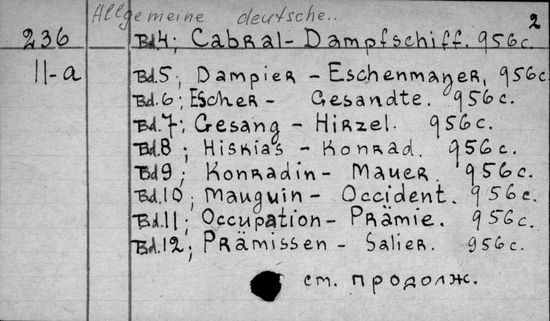 Allgemeine deutsche.. 2
236 Bd4; Cabral-Dampfschiff. 956c.
11-a Bd.5; Dampier - Eschenmayer, 956c.
Bd.6; Escher - Gesandte. 956c.
Bd.7; Gesang - Hirzel. 956c.
Bd.8; Hiskias - Konrad. 956c.
Bd9; Konradin - Mauer. 956c.
Bd.10; Mauguin - Occident. 956c.
Bd.11; Occupation - Prämie. 956c.
Bd.12; Prämissen - Salier. 956c.
см. продолж.